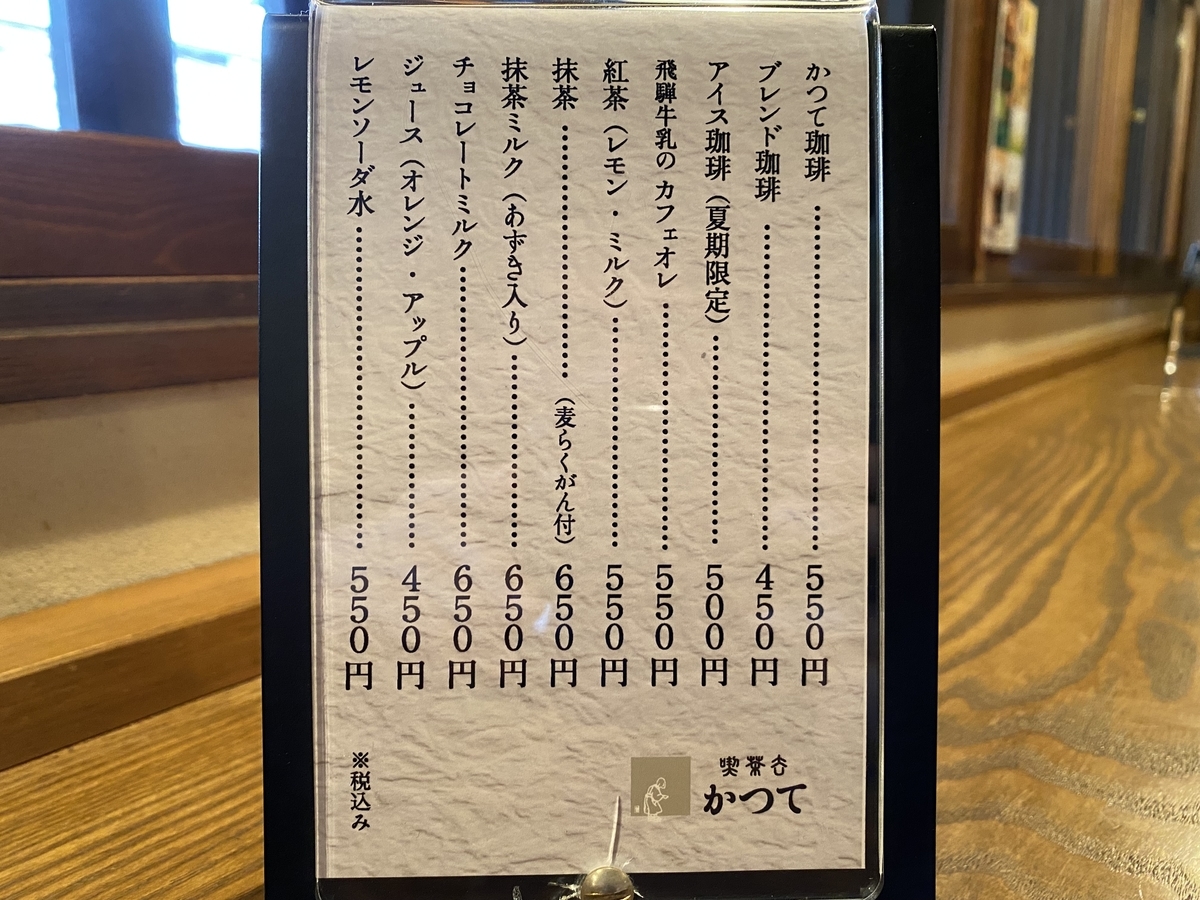 かつて珈琲 ………… 550円
ブレンド珈琲 ………… 450円
アイス珈琲（夏期限定） ………… 500円
飛騨牛乳の カフェオレ ………… 550円
紅茶（レモン・ミルク） ………… 550円
抹茶 ………… （麦らくがん付） 650円
抹茶ミルク（あずき入り） ………… 650円
チョコレートミルク ………… 650円
ジュース（オレンジ・アップル） ………… 450円
レモンソーダ水 ………… 550円
喫茶去
かつて
※税込み